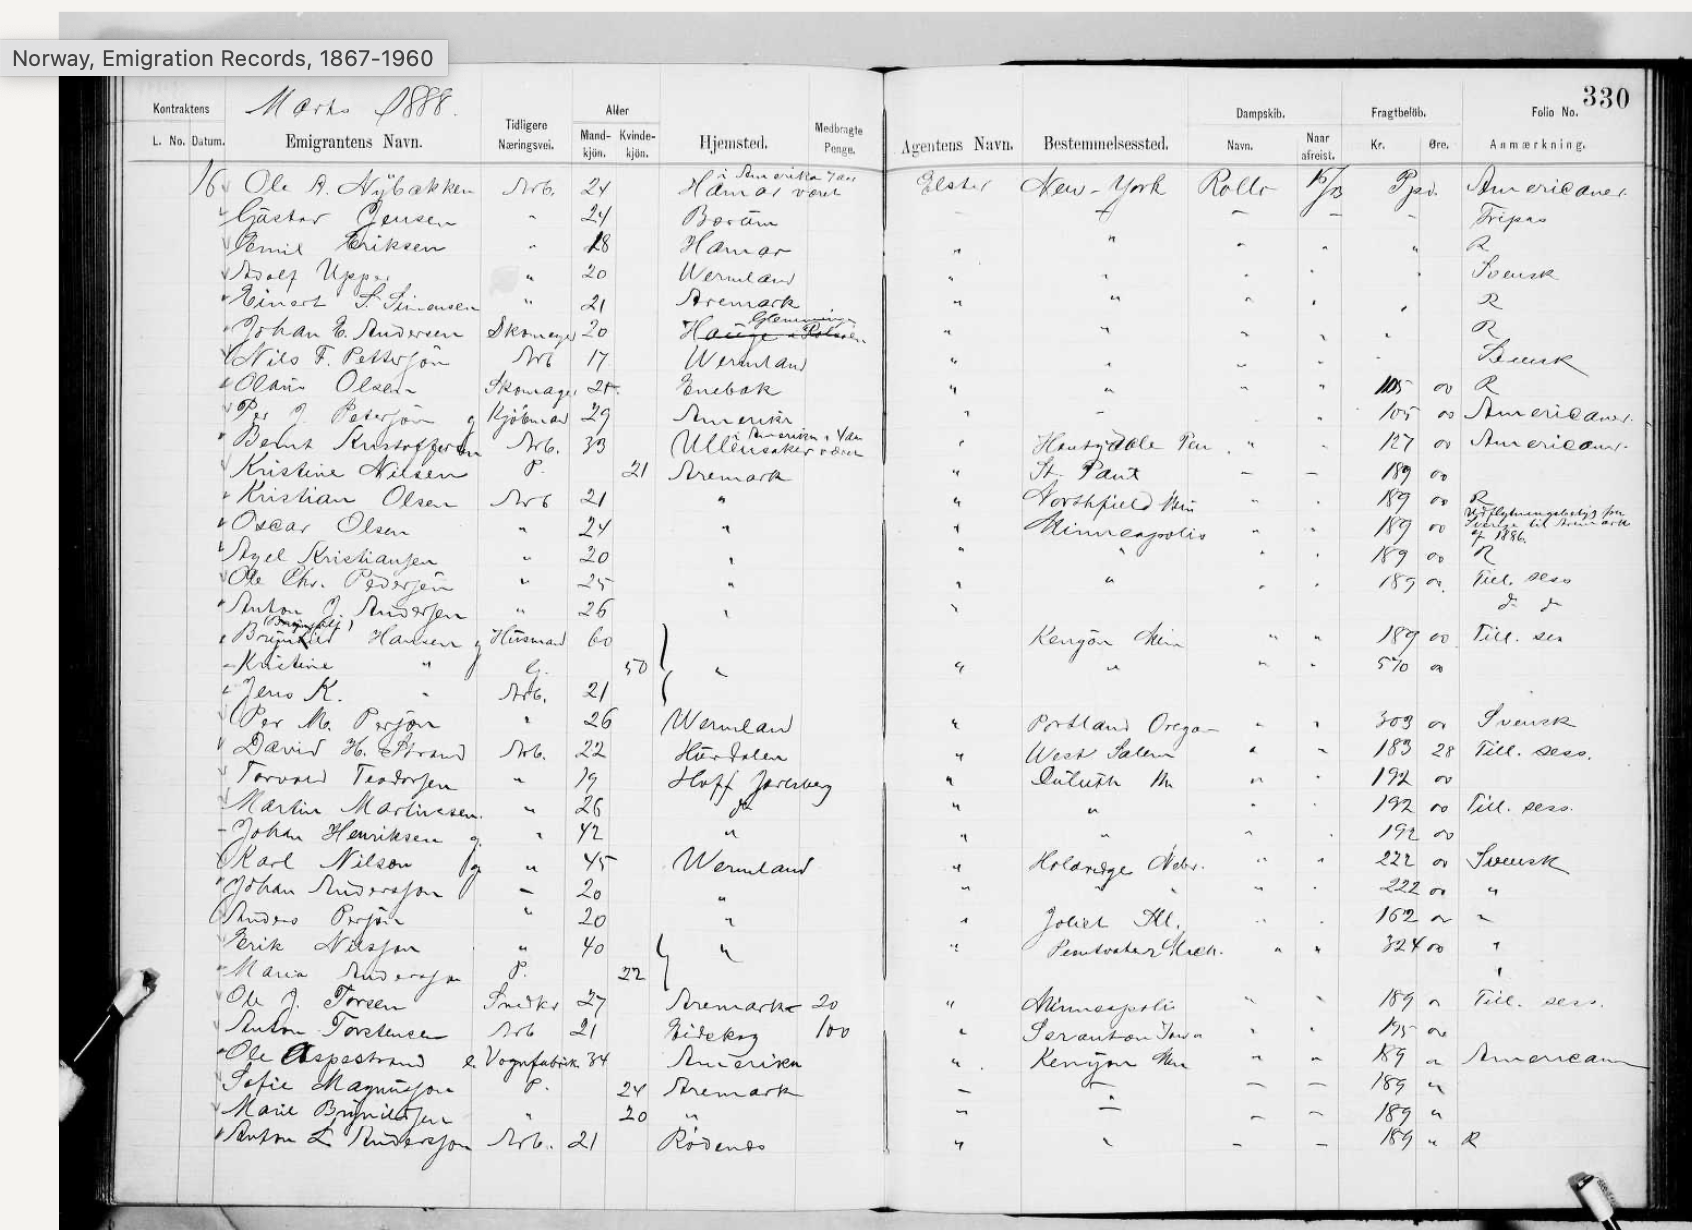 Norway, Emigration Records, 1867-1960
330
Kontraktens Marts 1888. Tidligere Næringsvei. Alder Hjemsted. Medbragte Penge. Agentens Navn. Bestemmelsessted. Dampskib. Fragtbeløb. Folio No.
L. No. Datum. Emigrantens Navn. Mandkjön. Kvindekjön. Navn. Naar afreist. Kr. Øre. Anmærkning.
16 Ole A. Nybakken Arb. 24 Hamar i Amerika været Elster New-York Rollo 16/3 Ppd. Americaner
Gustav Jensen " 24 Bærum " " " " " Fripas
Emil Eriksen " 18 Hamar " " " " " R
Adolf " 20 Wermland " " " " " Svensk
Einart S. Simensen " 21 Aremark " " " " " R
Johan E. Andersen Skomager 20 Glemminge " " " " " R
Nils F. Pettersson Arb 17 Wermland " " " " Svensk
Olaus Olsen Skomager Enebak " " " " 105 00 R
Per J. Peterson g Kjöbmand 29 Amerika " " " 105 00 Americaner.
Bernt Kristoffersen Arb. 33 Ullensaker i Amerika været " Houtzdale Pen " " 127 00 Americaner.
Kristine Nilsen P. 21 Aremark " St. Paul " " 189 00
Kristian Olsen Arb 21 " " Northfield Min " " 189 00 R
Oscar Olsen " 24 " " Minneapolis " " 189 00 Udflytningsbetyg fra Sverige til Aremark af 1886.
Axel Kristiansen " 20 " " " " " 189 00 R
Ole Chr. Pedersen " 25 " " " " " 189 00 Till. sess
Anton J. Andersen " 26 " " do do
Hansen g Husmand 60 Kenyon Min " " 189 00 Till. ses
Kristine " G. 50 " " " " " 570 00
Jens K. " Arb. 21
Per M. Persson " 26 Wermland " Portland Oregon " " 303 00 Svensk
David H. Strand Arb. 22 Hurdalen " West Salem " " 183 28 Till. sess.
Torvald Teodorsen " 19 Hoff Jarlsberg " Duluth Mn " " 192 00
Martin Martinesen. " 26 do " " " " 192 00 Till. sess.
Johan Henriksen g. " 42 " " " " " 192 00
Karl Nilson g " 45 Wermland " Holdredge Nebr. " " 222 00 Svensk
Johan Andersson " 20 " " " " " 222 00 "
Anders Persson " 20 " " Joliet Ill. " " 162 00 "
Erik Nilsson " 40 " " Pentwater Mich. " " 324 00 "
Maria Andersson P. 22 "
Ole J. Torsen Snedker 27 Aremark 20 " Minneapolis " " 189 " Till. sess.
Anton Torstensen Arb 21 Eidskog 100 " Scranton Iowa " " 195 00
Ole Aspestrand e. Vognfabrik. 34 Amerika " Kenyon Min " " 189 " Americaner
Sofie Magnusson P. 24 Aremark " " " " 189 "
Marie Brynildsen " 20 " " " " " 189 "
Anton L. Andersson Arb. 21 Rödenes " " " " 189 " R